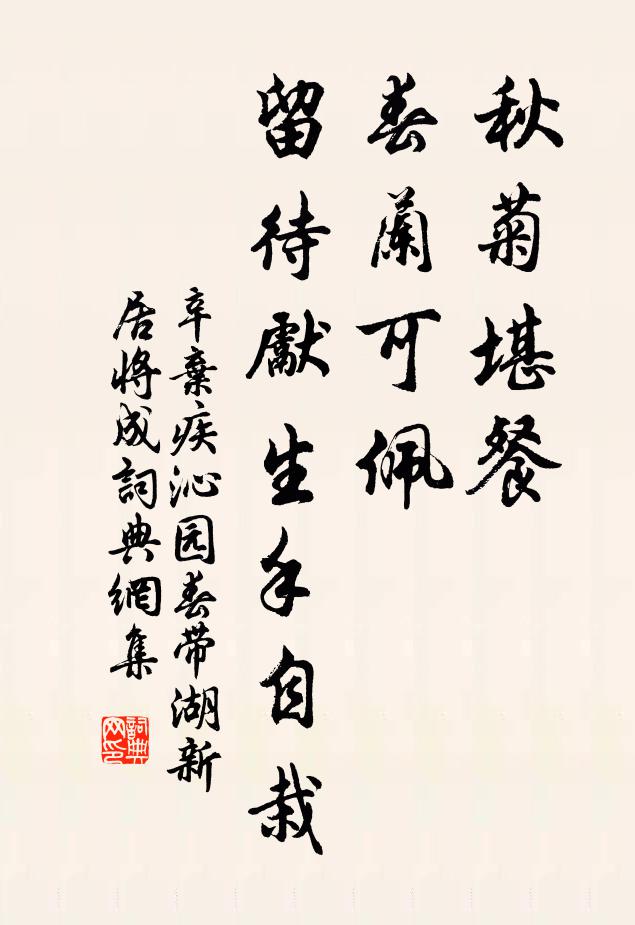 秋菊堪餐
春蘭可佩
留待獻生手自栽
辛棄疾沁园春带湖新
居將成詞典網集
詞典
网印